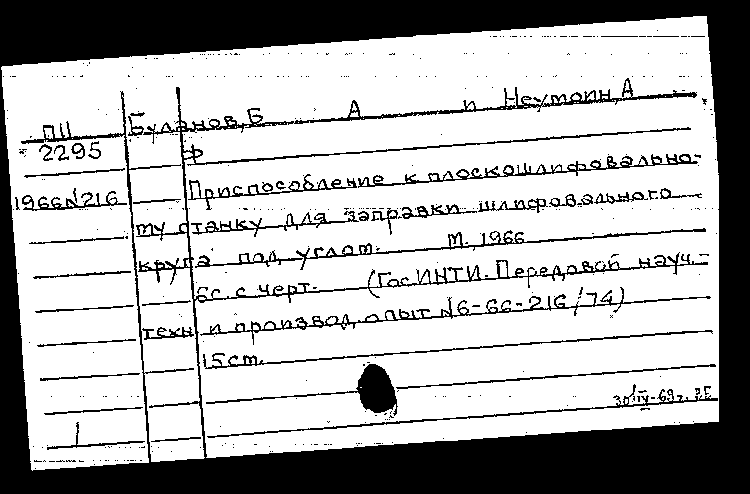 ПII Буланов, Б А и Неумоин, А
2295 Ф
1966№216 Приспособление к плоскошлифовально-
му станку для заправки шлифовального
круга под углом. М., 1966
6с. с черт. (ГосИНТИ. Передовой науч.-
техн. и производ. опыт №6-66-216/74)
15см.
30/IV-69г.
1